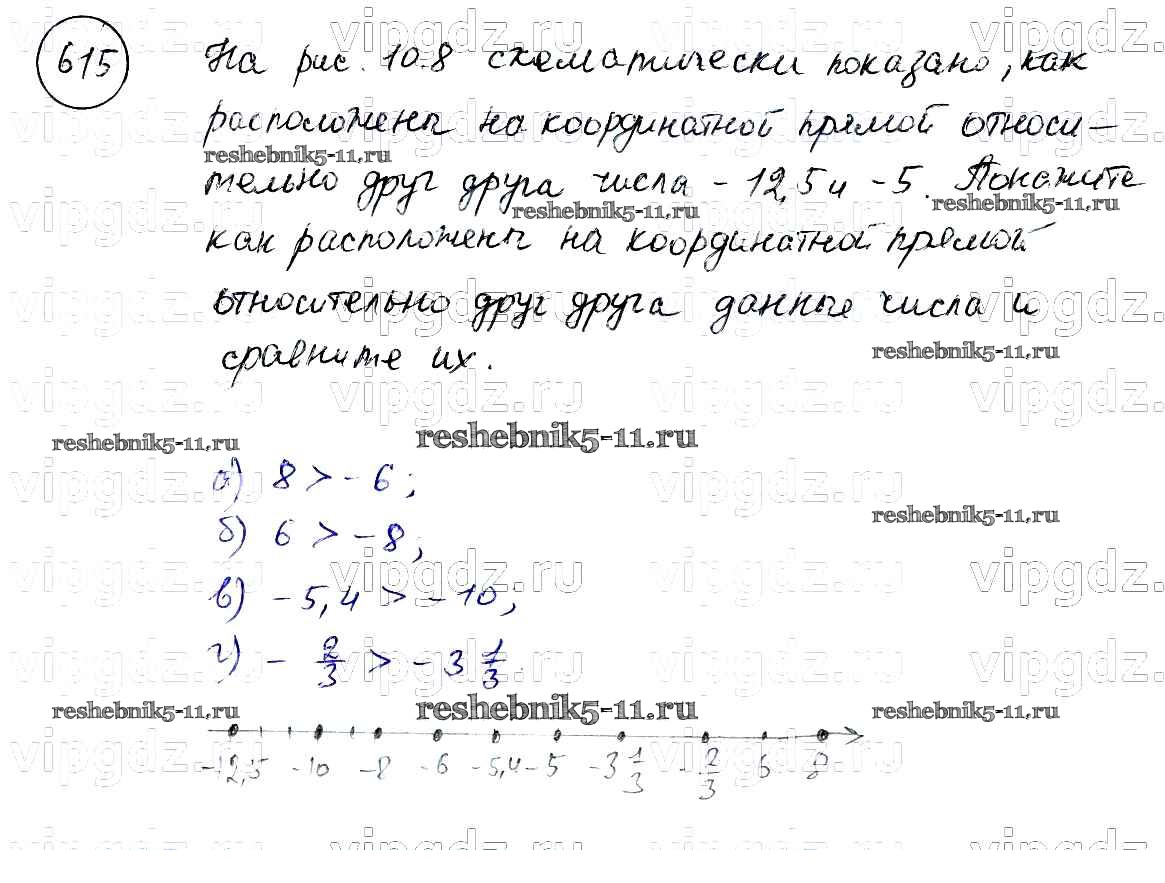 615
На рис. 10.8 схематически показано, как
расположены на координатной прямой относи-
тельно друг друга числа -12,5 и -5. Покажите
как расположены на координатной прямой
относительно друг друга данные числа и
сравните их.
а) 8 > -6;
б) 6 > -8;
в) -5,4 > -10,
г) - 2/3 > -3 1/3.
-12,5 -10 -8 -6 -5,4 -5 -3 1/3 - 2/3 6 8
vipgdz.ru
reshebnik5-11.ru